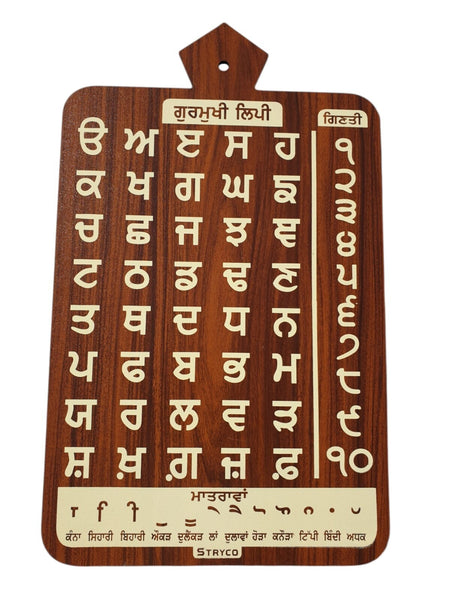 ਗੁਰਮੁਖੀ ਲਿਪੀ ਗਿਣਤੀ
ੳ ਅ ੲ ਸ ਹ ੧
ਕ ਖ ਗ ਘ ਙ ੨
ਚ ਛ ਜ ਝ ਞ ੩
੪
ਟ ਠ ਡ ਢ ਣ ੫
ਤ ਥ ਦ ਧ ਨ ੬
ਪ ਫ ਬ ਭ ਮ ੭
੮
ਯ ਰ ਲ ਵ ੜ ੯
ਸ਼ ਖ਼ ਗ਼ ਜ਼ ਫ਼ ੧੦
ਮਾਤਰਾਵਾਂ
ਾ ਿ ੀ ੁ ੂ ੇ ੈ ੋ ੌ ੰ ਂ ੱ
ਕੰਨਾ ਸਿਹਾਰੀ ਬਿਹਾਰੀ ਔਕੜ ਦੁਲੈਂਕੜ ਲਾਂ ਦੁਲਾਵਾਂ ਹੋੜਾ ਕਨੌੜਾ ਟਿੱਪੀ ਬਿੰਦੀ ਅਧਕ
STRYCO